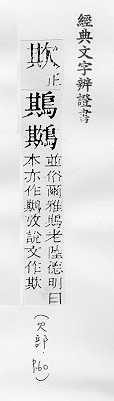 經典文字辨證書
欺正
鶀
並俗爾雅鶀老陸德明曰
木亦作攷說文作欺
(欠部. P.60)